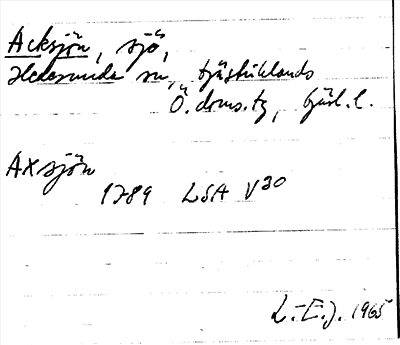 Acksjön, sjö,
Hedesunda sn, Gästriklands
Ö. doms.tg, Gästr. l.
Axsjön
1789 LSA V30
L.-E.J. 1965